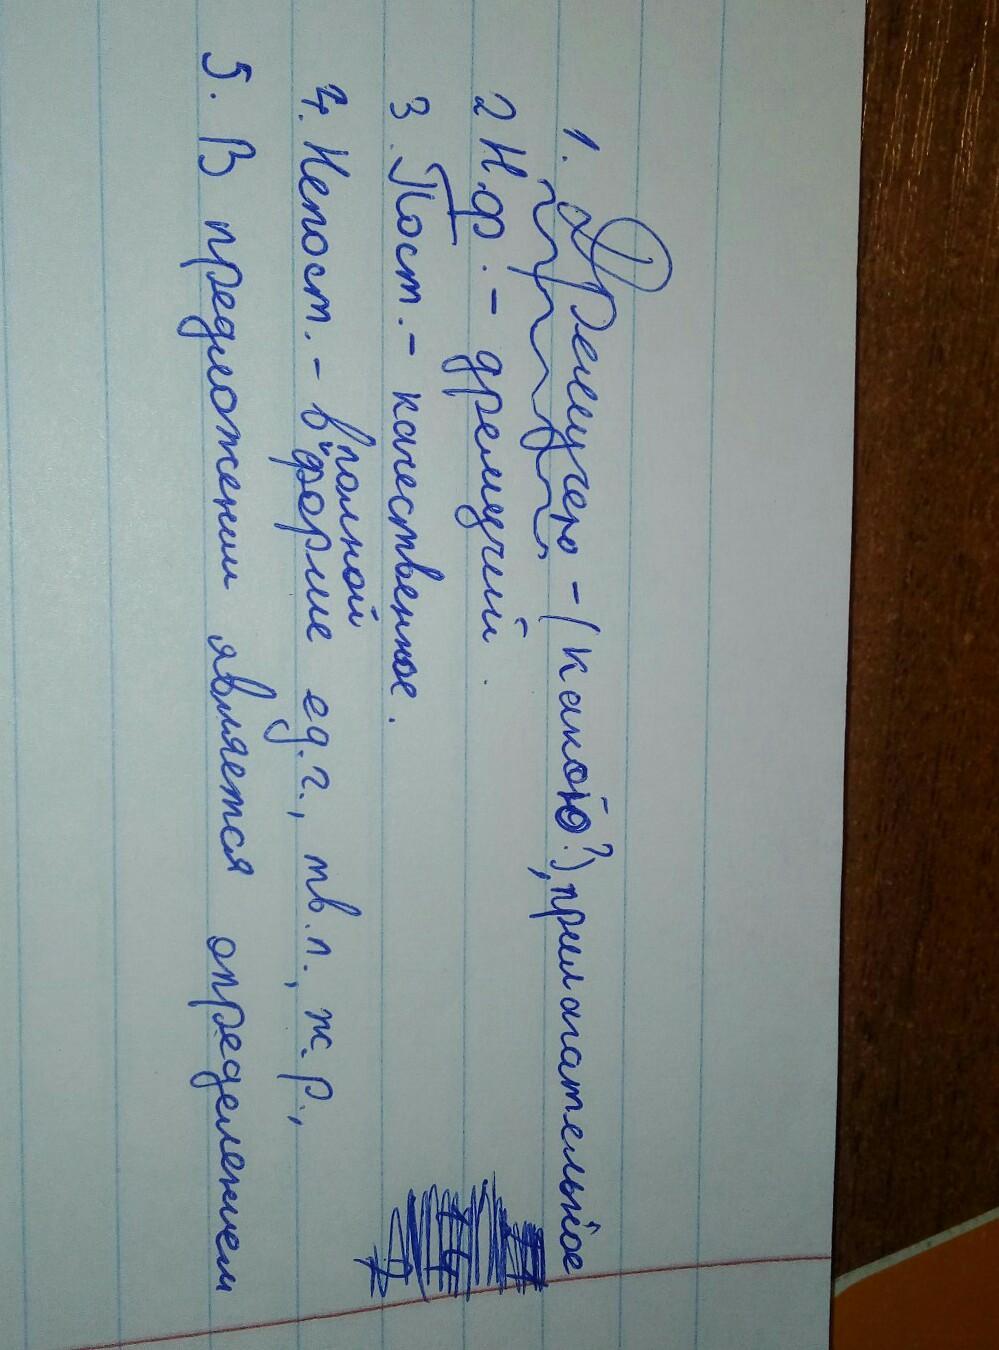 1. Дремучею - (какою?), прилагательное
2 Н.ф. - дремучий.
3. Пост. - качественное.
4. Непост. - в полной форме ед.ч., тв.п., ж.р.,
5. В предложении является определением